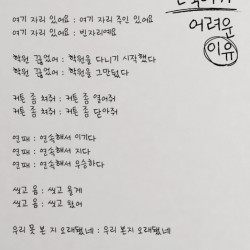 어려운
이유
여기 자리 있어요 : 여기 자리 주인 있어요
여기 자리 있어요 : 빈자리예요
학원 끊었어 : 학원을 다니기 시작했다
학원 끊었어 : 학원을 그만뒀다
커튼 좀 쳐줘 : 커튼 좀 열어줘
커튼 좀 쳐줘 : 커튼 좀 닫아줘
연패 : 연속해서 이기다
연패 : 연속해서 지다
연패 : 연속해서 우승하다
씻고 옴 : 씻고 올게
씻고 옴 : 씻고 왔어
우리 못 본 지 오래됐네 : 우리 본지 오래됐네